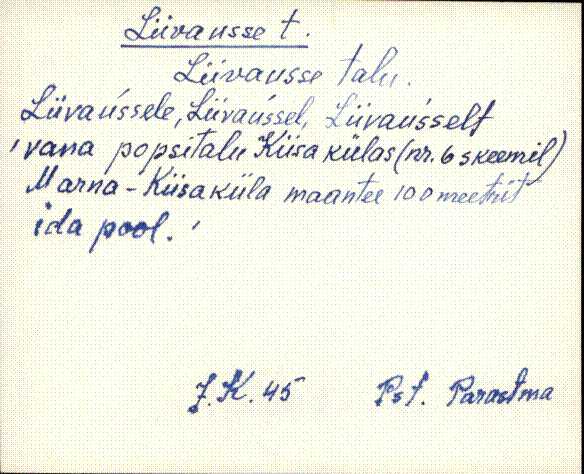 Liivausse t.
Liivausse talu.
Liivaússele, Liivaússel, Liivaússelt
'vana popsitalu Kiisa külas (nr. 6 skeemil)
Marna - Kiisaküla maantee 100 meetrit
ida pool.'
J. K. 45 Pst. Parastma